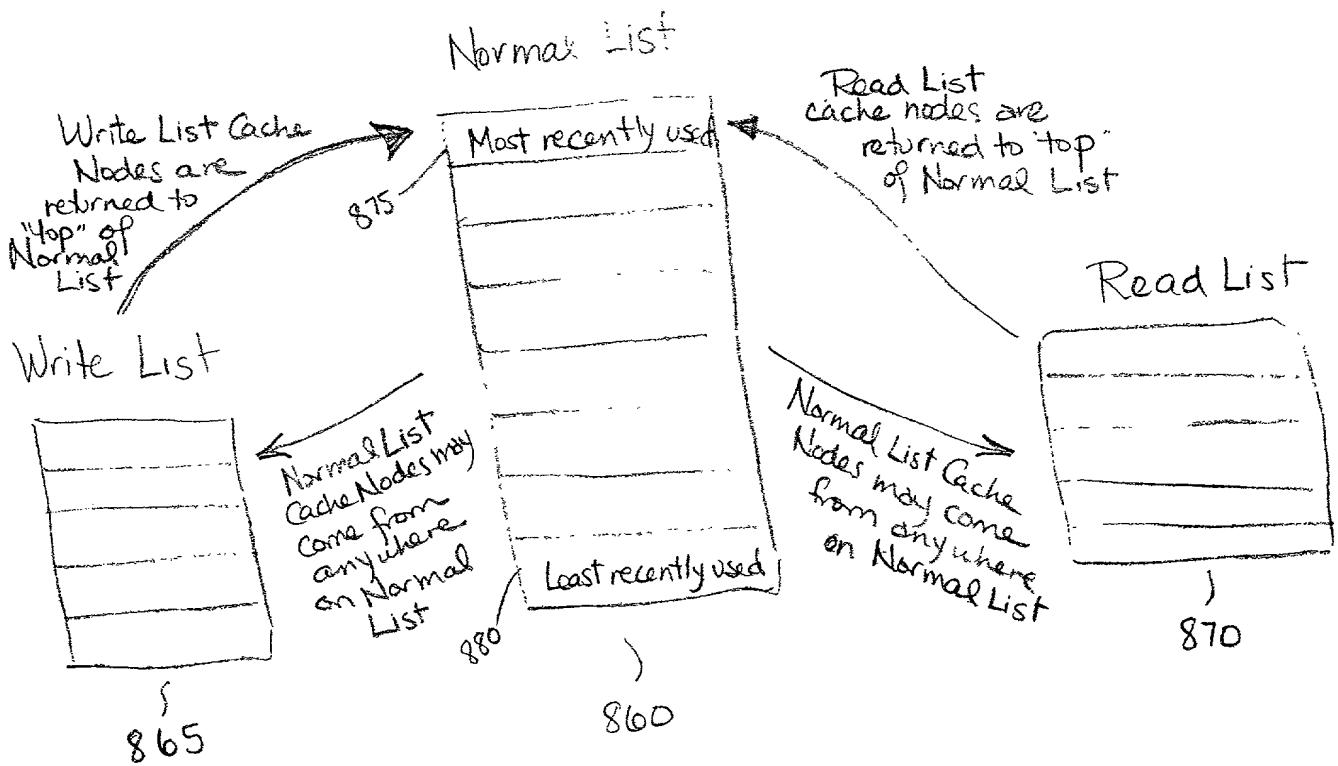 Normal List
Write List Cache
Nodes are
returned to
"top" of
Normal
List
Most recently used
875
Read List
cache nodes are
returned to "top"
of Normal List
Read List
Write List
Normal List
Cache Nodes may
come from
anywhere
on Normal
List
Normal List Cache
Nodes may come
from anywhere
on Normal List
Least recently used
880
860
865
870